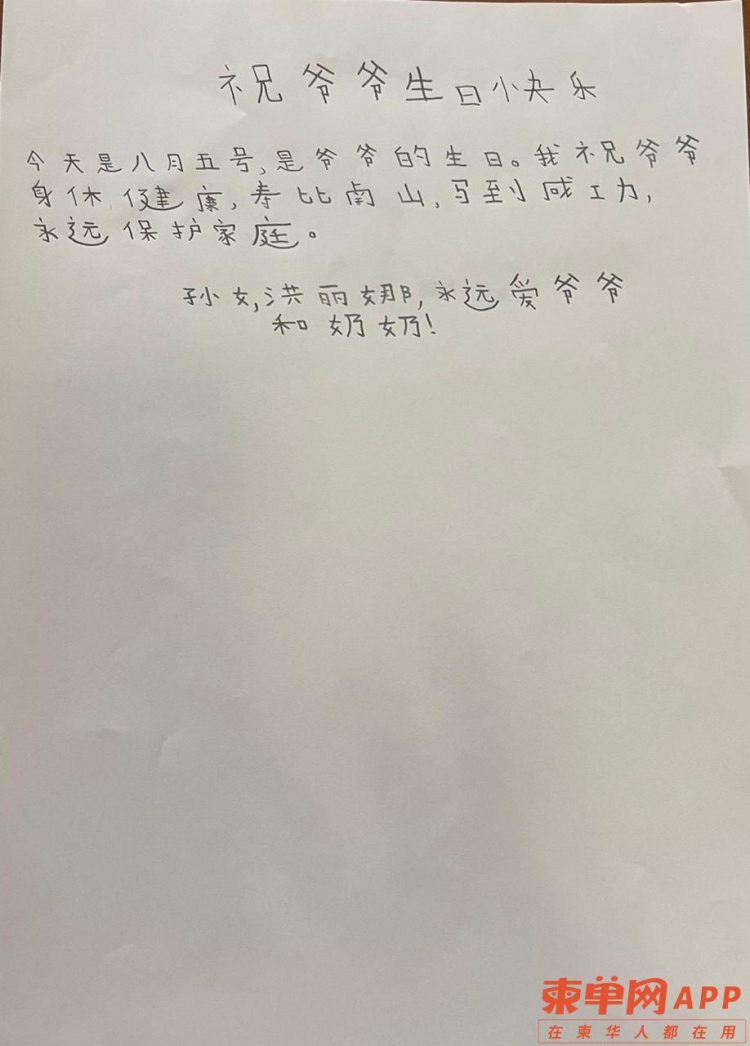 祝爷爷生日快乐
今天是八月五号,是爷爷的生日。我祝爷爷
身休健康,寿比南山,马到成工力,
永远保护家庭。
孙女,洪丽娜,永远爱爷爷
和奶奶!
柬单网APP
在柬华人都在用